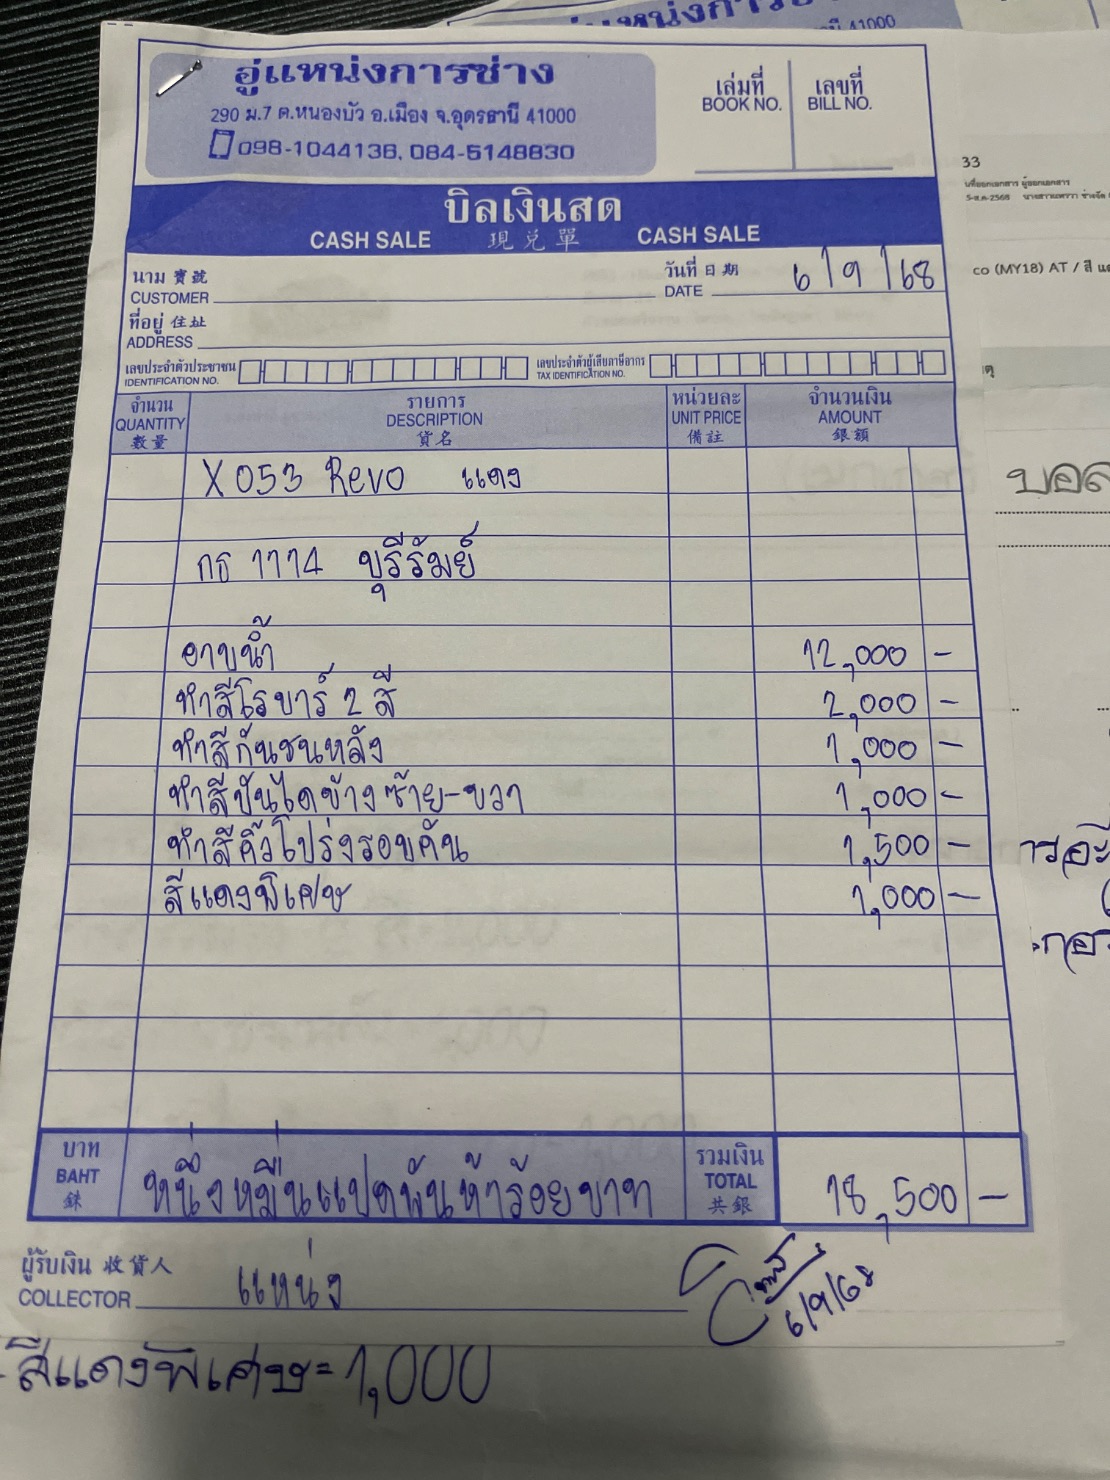 อู่แหน่งการช่าง
290 ม.7 ต.หนองบัว อ.เมือง จ.อุดรธานี 41000
098-1044136, 084-5148830
เล่มที่
BOOK NO.
เลขที่
BILL NO.
บิลเงินสด
CASH SALE 現兑單 CASH SALE
นาม 寶號
CUSTOMER
วันที่ 日期
DATE 6/9/68
ที่อยู่ 住址
ADDRESS
เลขประจำตัวประชาชน
IDENTIFICATION NO.
เลขประจำตัวผู้เสียภาษีอากร
TAX IDENTIFICATION NO.
จำนวน
QUANTITY
數量
รายการ
DESCRIPTION
貨名
หน่วยละ
UNIT PRICE
備註
จำนวนเงิน
AMOUNT
銀額
X053 Revo แดง
กธ 1114 บุรีรัมย์
อาบน้ำ 12,000 -
ทำสีโรบาร์ 2 สี 2,000 -
ทำสีกันชนหลัง 1,000 -
ทำสีบันไดข้างซ้าย-ขวา 1,000 -
ทำสีคิ้วโป่งรอบคัน 1,500 -
สีแดงพิเศษ 1,000 -
บาท
BAHT
銖
หนึ่งหมื่นแปดพันห้าร้อยบาท
รวมเงิน
TOTAL
共銀
18,500 -
ผู้รับเงิน 收貨人
COLLECTOR แหน่ง
6/9/68
สีแดงพิเศษ = 1,000
41000
33
co (MY18) AT / สี แด